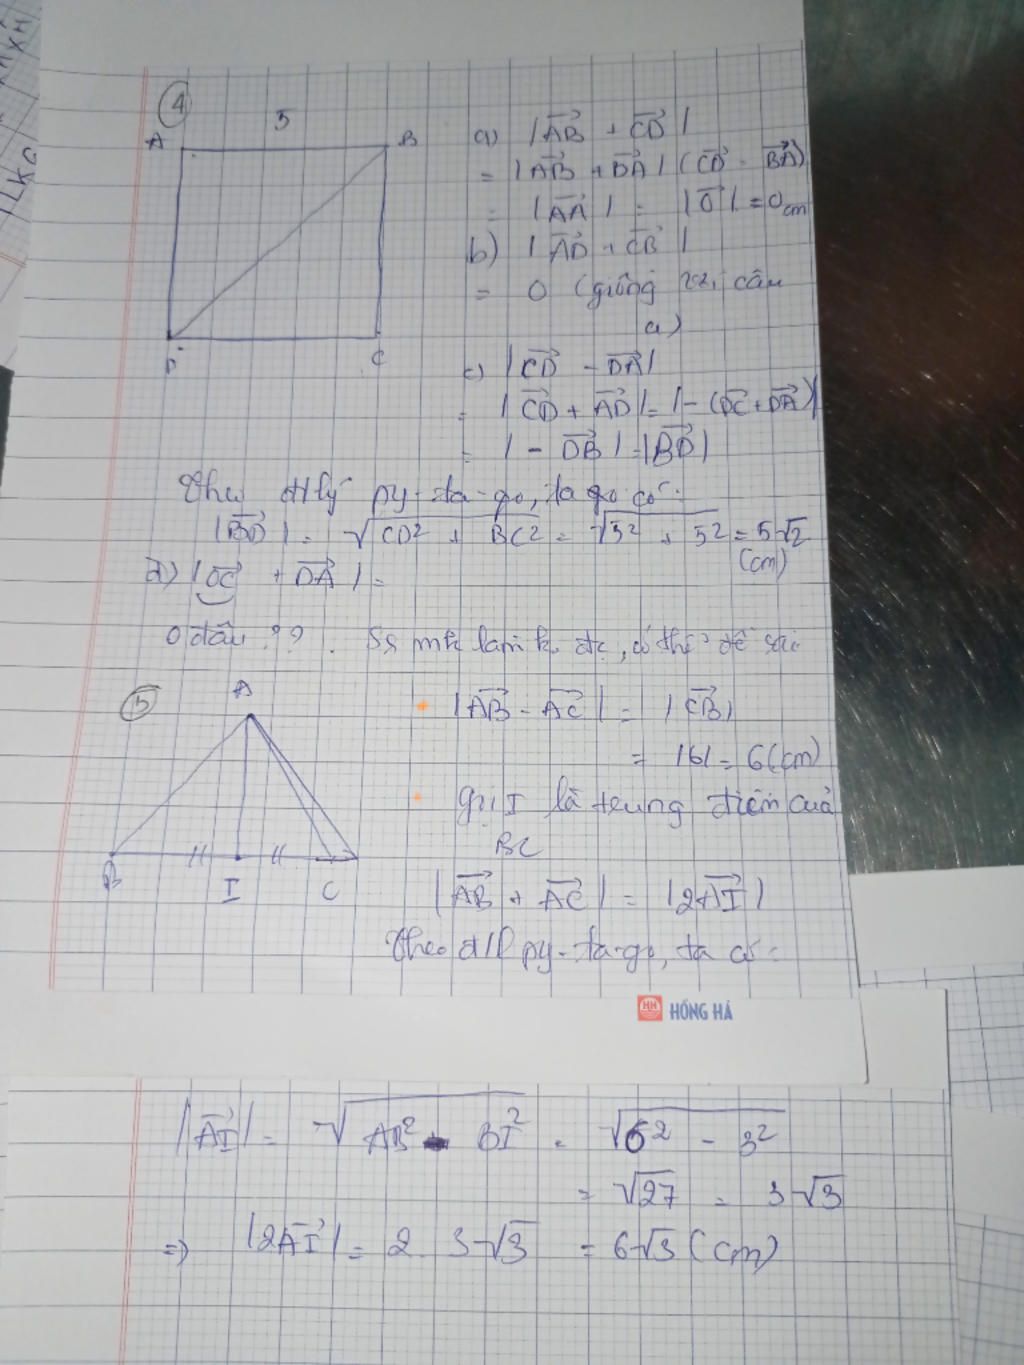 4
5
A B
D C
a) |AB + CD|
= |AB + DA| (CD = BA)
= |AA| = |0| = 0cm
b) |AD + CB|
= 0 (giống vs câu
a)
c) |CD - DA|
= |CD + AD| = |-(DC + DA)|
= |-DB| = |BD|
Theo đ/lý py-ta-go, ta có:
|BD| = √CD² + BC² = √5² + 5² = 5√2
(cm)
d) |OC + DA| =
O đâu ??. mk làm k đc, có thể đề sai
5
A
B I C
|AB - AC| = |CB|
= |6| = 6(cm)
Gọi I là trung điểm của
BC
|AB + AC| = |2AI|
Theo đ/l py-ta-go, ta có:
HH HỒNG HÀ
|AI| = √AB² - BI² = √6² - 3²
= √27 = 3√3
=> |2AI| = 2. 3√3 = 6√3 (cm)